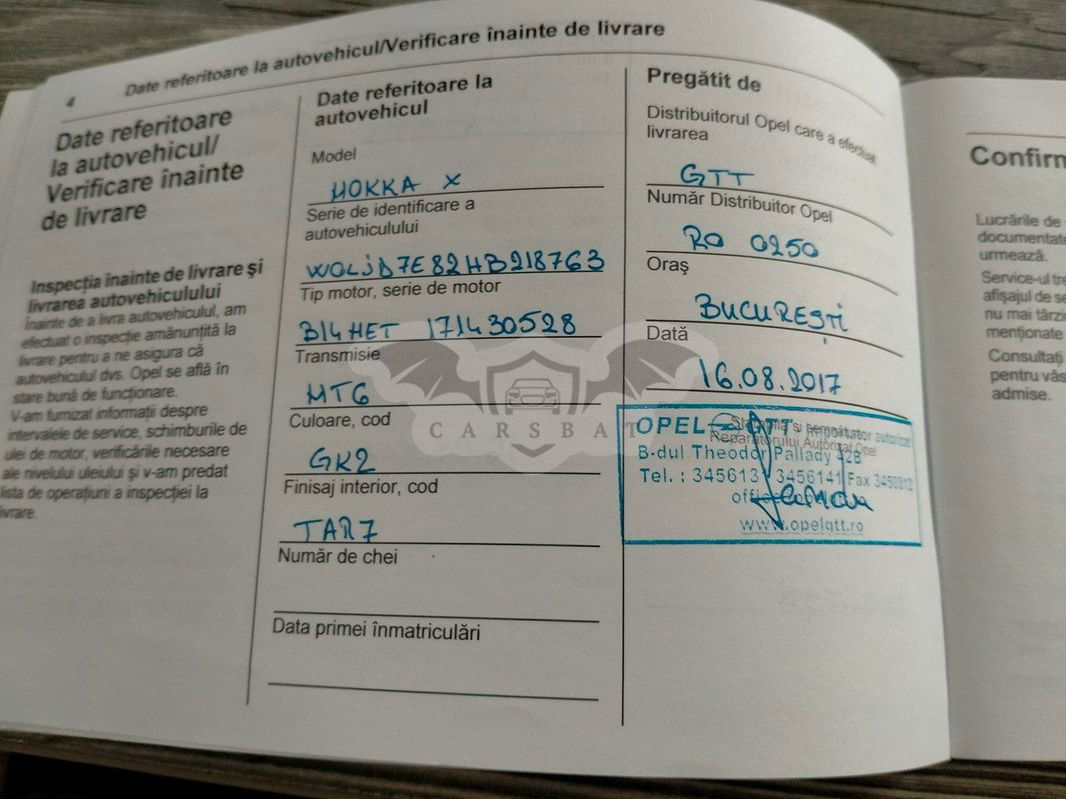 4 Date referitoare la autovehicul/Verificare înainte de livrare
Date referitoare
la autovehicul/
Verificare înainte
de livrare
Inspecția înainte de livrare și
livrarea autovehiculului
Înainte de a livra autovehiculul, am
efectuat o inspecție amănunțită la
livrare pentru a ne asigura că
autovehiculul dvs. Opel se află în
stare bună de funcționare.
V-am furnizat informații despre
intervalele de service, schimburile de
ulei de motor, verificările necesare
ale nivelului uleiului și v-am predat
lista de operațiuni a inspecției la
livrare.
Date referitoare la
autovehicul
Model
MOKKA X
Serie de identificare a
autovehiculului
WOLJD7E82HB218763
Tip motor, serie de motor
B14NET 171430528
Transmisie
MT6
Culoare, cod
GK2
Finisaj interior, cod
TAR7
Număr de chei
Data primei înmatriculări
Pregătit de
Distribuitorul Opel care a efectuat
livrarea
GTT
Număr Distribuitor Opel
RO 0250
Oraș
BUCUREȘTI
Dată
16.08.2017
Ștampila și semnătura
Reparatorului Autorizat Opel
OPEL GTT Reparator autorizat
B-dul Theodor Pallady
Tel. : 345613 3456141 Fax
www.opelgtt.ro
CARSBAT
Confirm
Lucrările de
documentate
urmează.
Service-ul tre
afișajul de se
nu mai târzi
menționate
Consultați
pentru văs
admise.